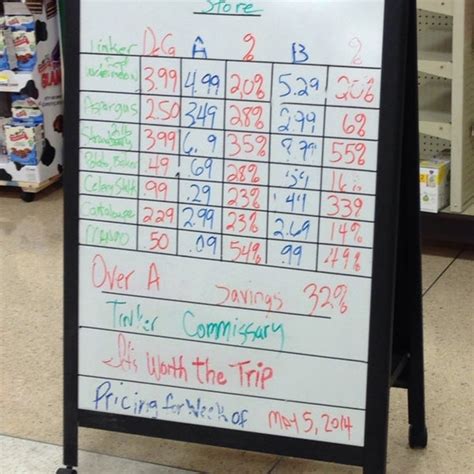 Store
Tinker DeCA A % B %
Watermelon 3.99 4.99 20% 5.29
Asparagus 2.50 349 28% 2.99 6%
Strawberry 399 35% 55%
Potato .49 .69 28%
Celery Stalk 99 .29 23% .49 339
Cantaloupe 2.29 2.99 23% 2.69 14%
.50 .09 54% .99 49%
Over A Savings 32%
Tinker Commissary
It's Worth the Trip
Pricing for Week of May 5, 2014